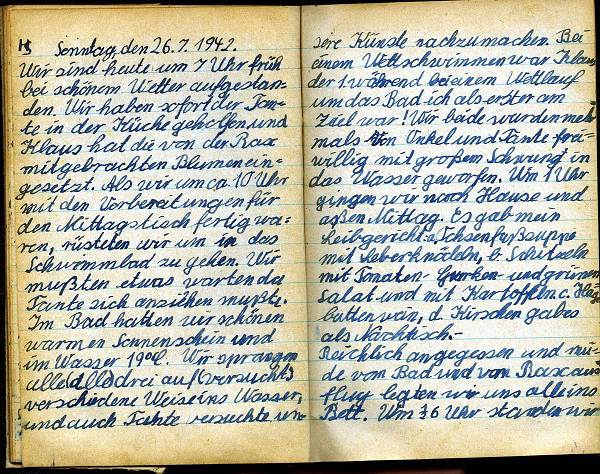 Sonntag, den 26.7.1942.
Wir sind heute um 7 Uhr früh
bei schönem Wetter aufgestan-
den. Wir haben sofort der Tan-
te in der Küche geholfen und
Klaus hat die von der Rax
mitgebrachten Blumen ein=
gesetzt. Als wir um ca. 10 Uhr
mit den Vorbereitungen für
den Mittagstisch fertig wa=
ren, rüsteten wir um in das
Schwimmbad zu gehen. Wir
mußten etwas warten da
Tante sich anziehen mußte.
Im Bad hatten wir schönen
warmen Sonnenschein und
im Wasser 19°C. Wir sprangen
alle drei auf (versucht)
verschiedene Weise ins Wasser,
und auch Tante versuchte un=
sere Künste nachzumachen. Bei
einem Wettschwimmen war Klaus
der 1. während bei einem Wettlauf
um das Bad ich als erster am
Ziel war! Wir beide wurden mehr
mals von Onkel und Tante frei=
willig mit großem Schwung in
das Wasser geworfen. Um 1 Uhr
gingen wir nach Hause und
aßen Mittag. Es gab mein
Leibgericht: a, Ochsenfußsuppe
mit Leberknödln, b. Schnitzeln
mit Tomaten- Gurken- und grünem
Salat und mit Kartoffeln c. Hage
buttenwein, d. Kirschen gab es
als Nachtisch.-
Reichlich angegessen und mü=
de vom Bad und vom Raxaus
flug legten wir uns alle ins
Bett. Um 36 Uhr standen wir